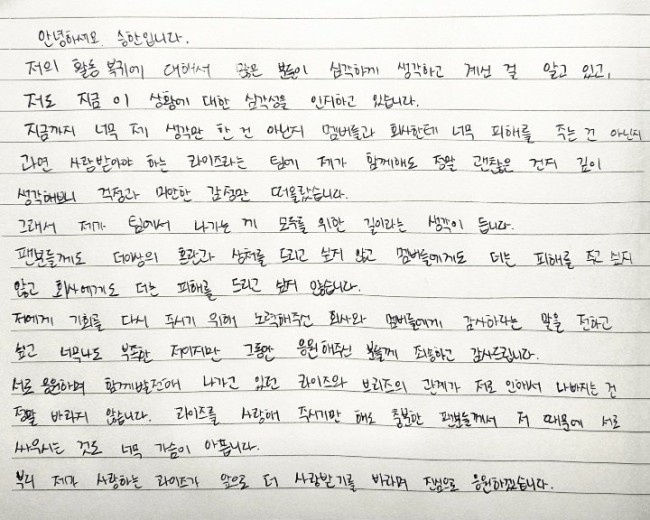 안녕하세요. 승한입니다.
저의 활동 복귀에 대해서 많은 분들이 심각하게 생각하고 계신 걸 알고 있고,
저도 지금 이 상황에 대한 심각성을 인지하고 있습니다.
지금까지 너무 제 생각만 한 건 아닌지 멤버들과 회사한테 너무 피해를 주는 건 아닌지
과연 사랑받아야 하는 라이즈라는 팀에 제가 함께해도 정말 괜찮은 건지 깊이
생각해보니 걱정과 미안한 감정만 떠올랐습니다.
그래서 제가 팀에서 나가는 게 모두를 위한 길이라는 생각이 듭니다.
팬분들께도 더이상의 혼란과 상처를 드리고 싶지 않고 멤버들에게도 더는 피해를 주고 싶지
않고 회사에게도 더는 피해를 드리고 싶지 않습니다.
저에게 기회를 다시 주시기 위해 노력해주신 회사와 멤버들에게 감사하다는 말을 전하고
싶고 너무나도 부족한 저이지만 그동안 응원해주신 분들께 죄송하고 감사드립니다.
서로 응원하며 함께 발전해 나가고 있던 라이즈와 브리즈의 관계가 저로 인해서 나빠지는 건
정말 바라지 않습니다. 라이즈를 사랑해 주시기만 해도 충분한 팬분들께서 저 때문에 서로
싸우시는 것도 너무 가슴이 아픕니다.
부디 제가 사랑하는 라이즈가 앞으로 더 사랑받기를 바라며 진심으로 응원하겠습니다.